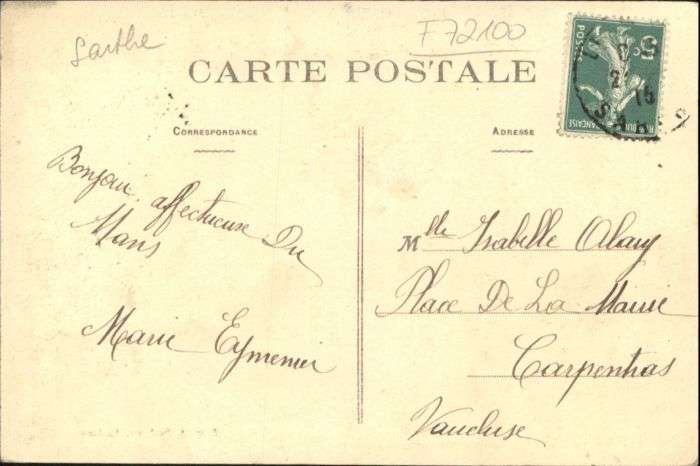 Sarthe
F72100
CARTE POSTALE
CORRESPONDANCE
ADRESSE
Bonjour affectueuse Du
Mans
Marie Eymenier
Mlle Isabelle Alary
Place De La Mairie
Carpentras
Vaucluse
5c
POSTES
FRANÇAISE
15